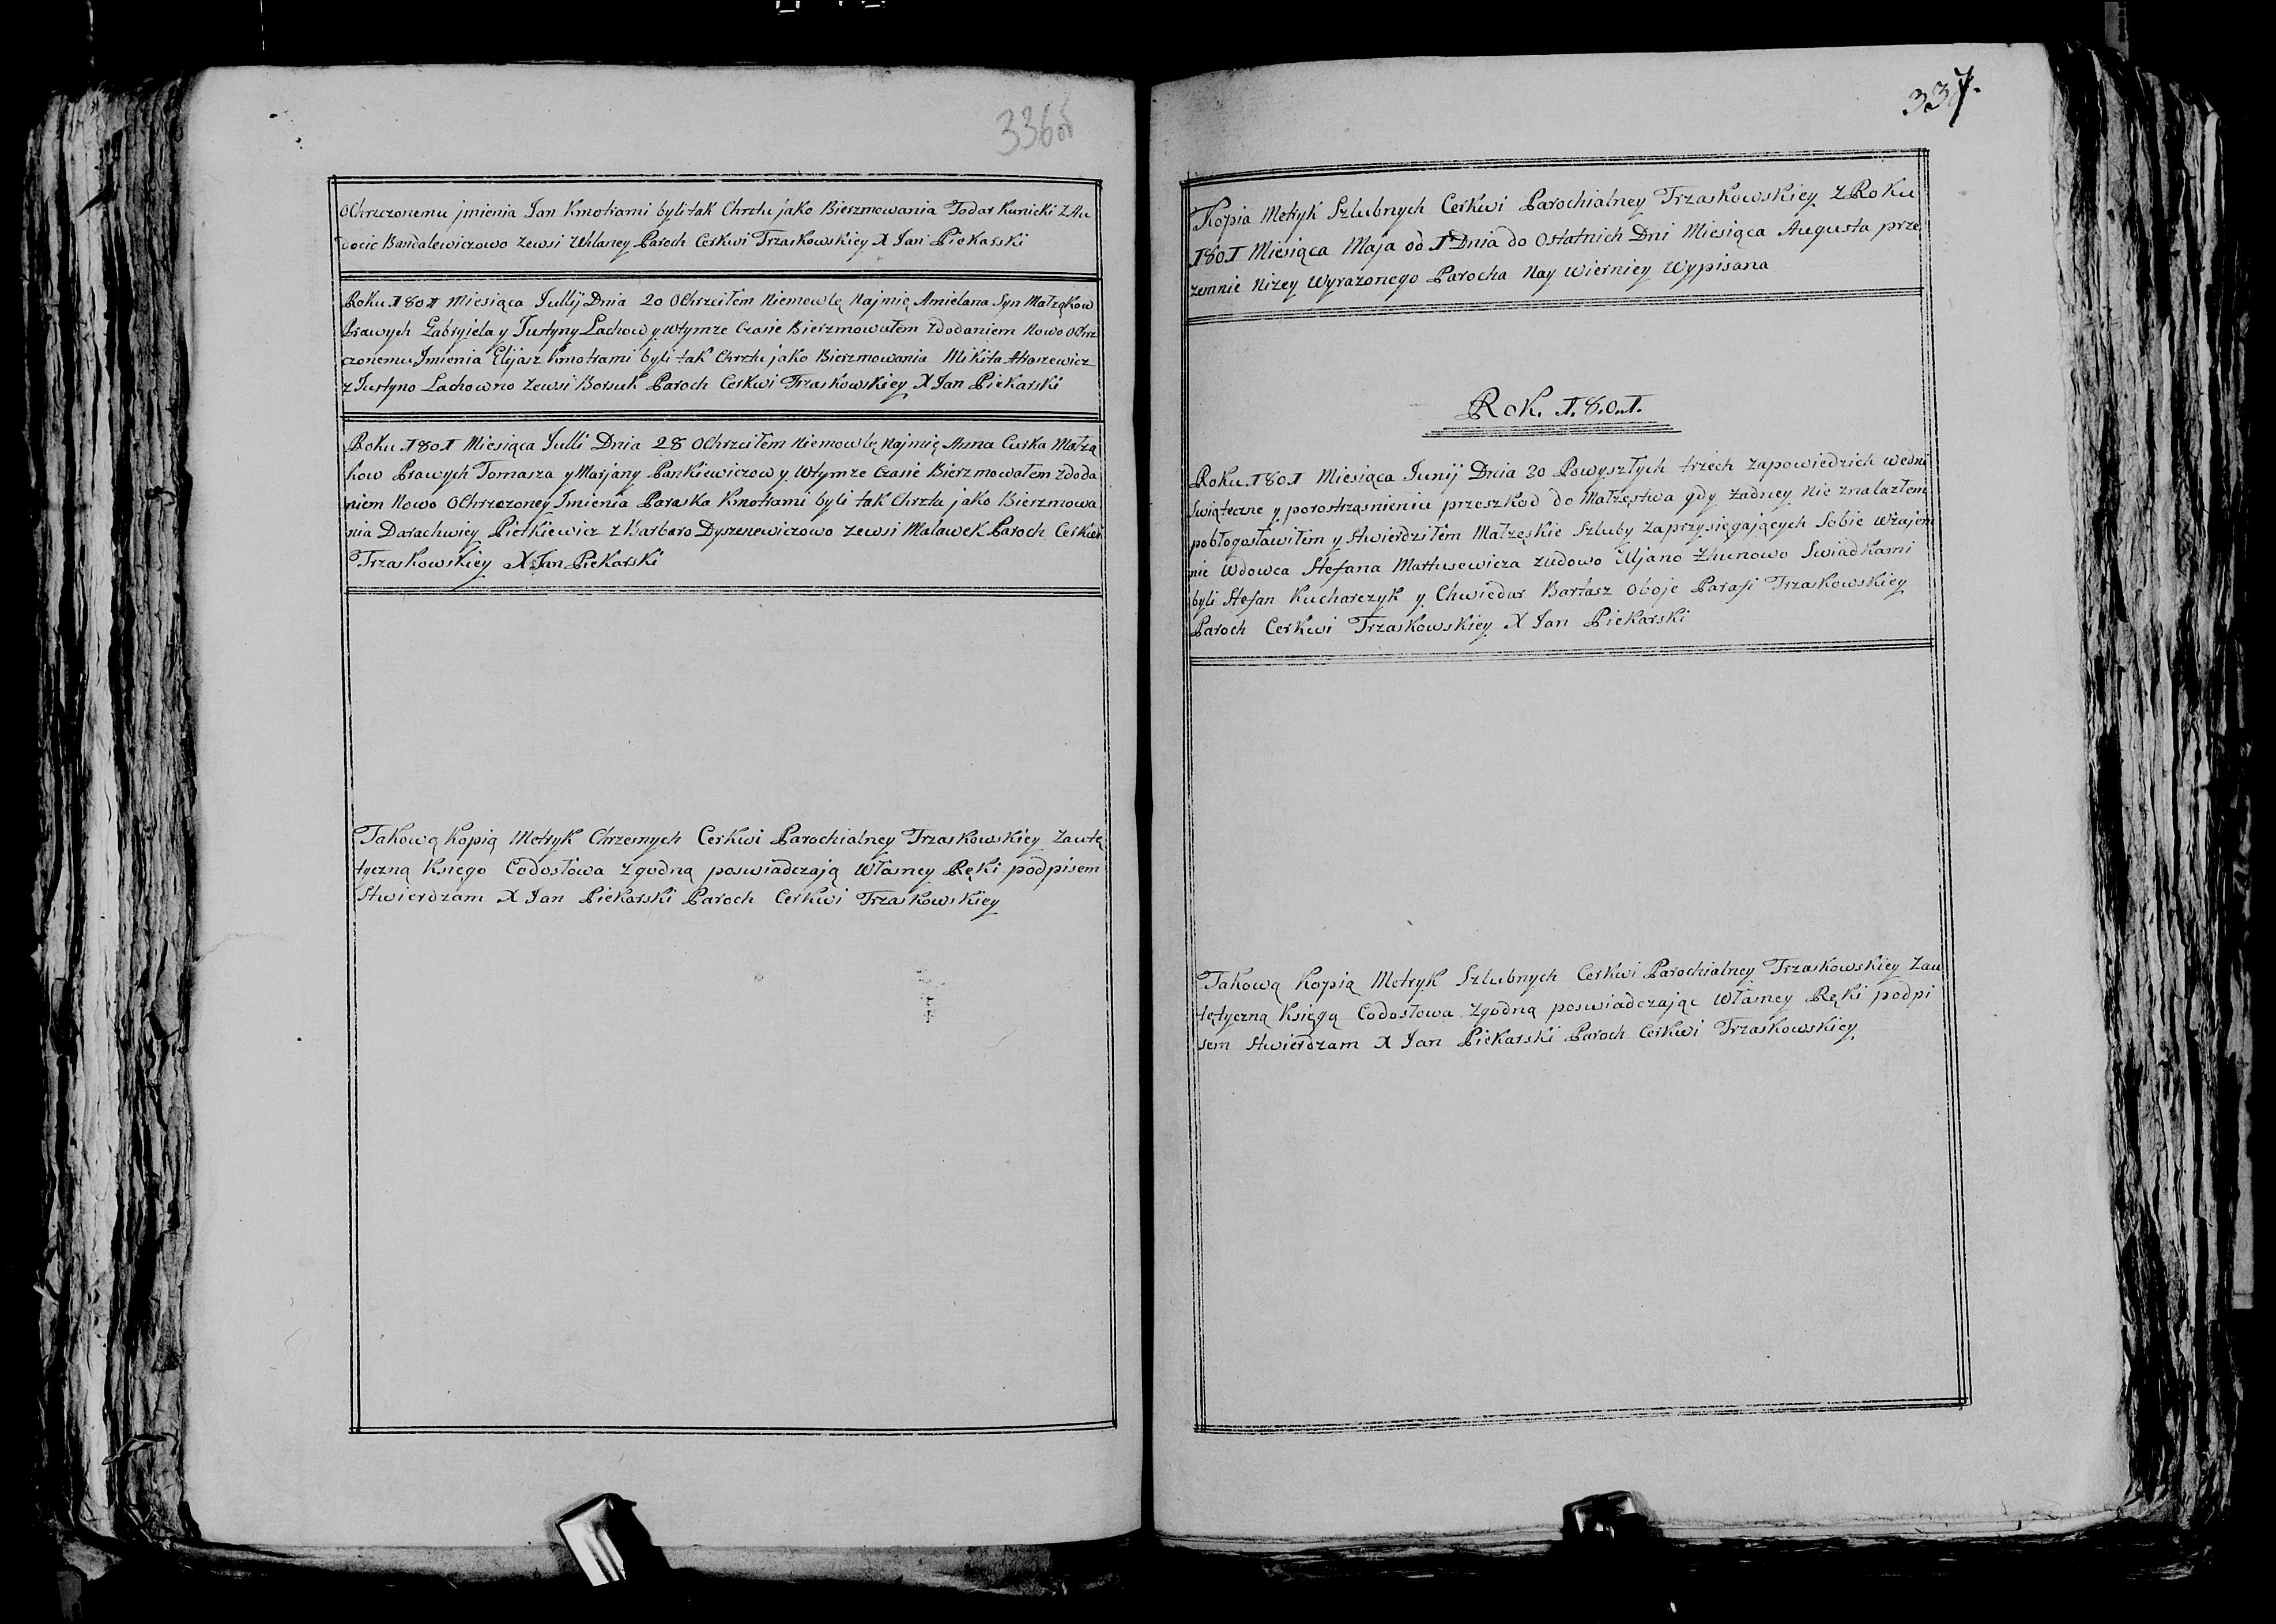 336об
OChrzczonemu jmienia Jan Kmotrami byli tak Chrztu jako Bierzmowania Todar Kunicki z Au
docie Bandalewiczowo zewsi Wlaney Paroch Cerkwi Trzaskowskiey X Jan Piekarski
Roku 1801 Miesiąca Jullij Dnia 20 OChrzciłem Niemowlę Najmię Amielana Syn Małząkow
Prawych Gabryjela y Justyny Lachow y wtymze Czasie Bierzmowałem zdodaniem Nowo OChrz
czonemu Jmienia Elijasz Kmotrami byli tak Chrztu jako Bierzmowania Mikita
z Justyno Lachowno zewsi Borsuk Paroch Cerkwi Trzaskowskiey X Jan Piekarski
Roku 1801 Miesiąca Julli Dnia 28 OChrzciłem Niemowlę Najmię Anna Curka Małzą
kow Prawych Tomasza y Marjany Pankiewiczow y Wtymze Czasie Bierzmowałem zdoda
niem Nowo OChrzczoney Jmienia Paraska Kmotrami byli tak Chrztu jako Bierzmowa
nia Darachwiey Pietkiewicz z Barbaro Dyszenewiczowo zewsi Malawek Paroch Cerkwi
Trzaskowskiey X Jan Piekarski
Takową Kopią Metryk Chrzesnych Cerkwi Parochialney Trzaskowskiey Zautę
tyczną Księgo Codosłowa Zgodną poswiadczają Włásney Ręki podpisem
Stwierdzam X Jan Piekarski Paroch Cerkwi Trzaskowskiey
337.
Kopia Metryk Szlubnych Cerkwi Parochialney Trzaskowskiey Z Roku
1801 Miesiąca Maja od 1 Dnia do Ostatnich Dni Miesiąca Augusta prze
zemnie Nizey Wyrazonego Parocha Nay Wierniey Wypisana
Rok. 1.8.0.1.
Roku 1801 Miesiąca Junij Dnia 30 Powyszłych trzech Zapowiedzich wedni
Swiąteczne y porostrząsnieniu przeszkod do Małzęstwa gdy Zadney Nie znalazłem
pobłogosławiłem y Stwierdziłem Małzęskie Szluby Zaprzysięgających Sobie Wzajem
nie Wdowca Stefana Martusewicza zudowo Uljano Zhunowo Swiadkami
byli Stefan Kucharczyk y Chwiedar Bartasz Oboje Parafi Trzaskowskiey
Paroch Cerkwi Trzaskowskiey X Jan Piekarski
Takową Kopią Metryk Szlubnych Cerkwi Parochialney Trzaskowskiey Zau
tętyczną Księgą Codosłowa Zgodną poswiadczając Włásney Ręki podpi
sem Stwierdzam X Jan Piekarski Paroch Cerkwi Trzaskowskiey